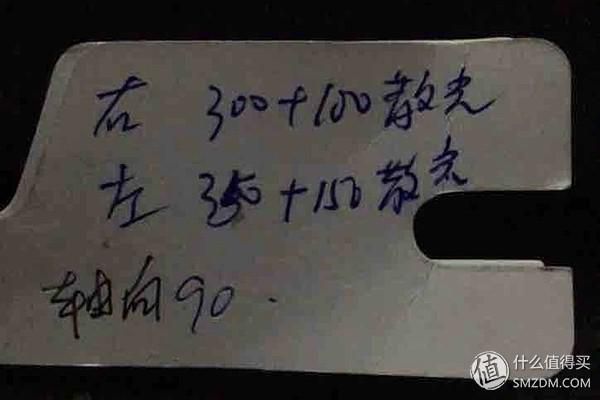 右 300+100散光
左 350+150散光
轴向90.
值 什么值得买
SMZDM.COM